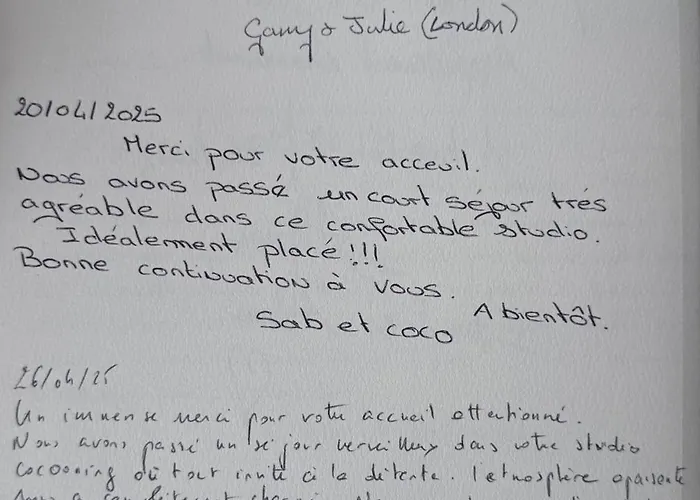 Gary & Julie (London)
20/04/2025
Merci pour votre acceuil.
Nous avons passé un court séjour trés
agréable dans ce confortable studio.
Idéalement placé!!!
Bonne continuation à vous.
A bientôt.
Sab et coco
26/04/25
Un immense merci pour votre accueil attentionné.
Nous avons passé un séjour merveilleux dans votre studio
cocooning où tout invite à la détente. l'atmosphère apaisante